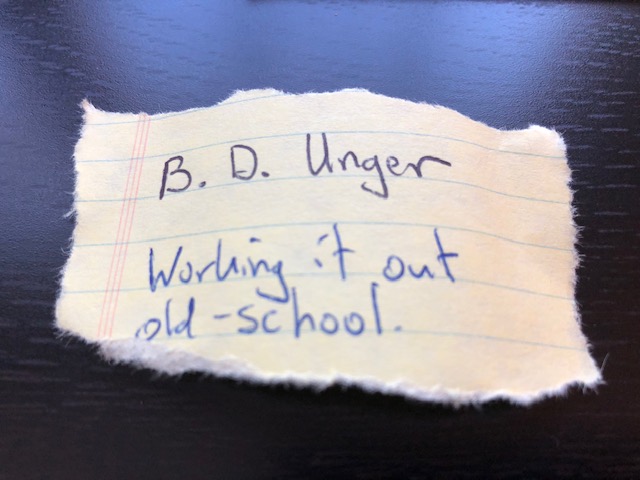 B. D. Unger
Working it out
old-school.